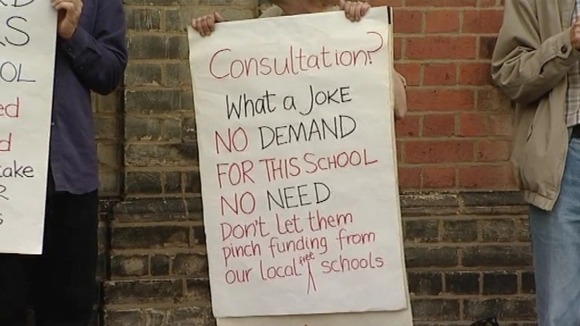 D
RS
OL
ed
d
take
R
s
Consultation?
What a JOKE
NO DEMAND
FOR THIS SCHOOL
NO NEED
Don't let them
pinch funding from
our local free schools